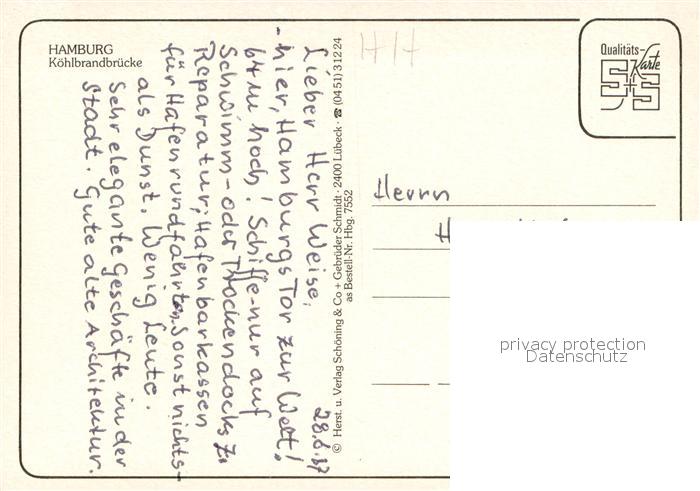 HAMBURG
Köhlbrandbrücke
Lieber Herr Weise,
28.6.87
-hier, Hamburgs Tor zur Welt!
64 m hoch! Schiffe-nur auf
Schwimm-oder Trockendocks z.
Reparatur; Hafenbarkassen
für Hafenrundfahrten. Sonst nichts-
als Dunst. Wenig Leute.
Sehr elegante Geschäfte in der
Stadt. Gute alte Architektur.
© Herst. u. Verlag Schöning & Co + Gebrüder Schmidt · 2400 Lübeck · ☎ (0451) 31224
as Bestell-Nr. Hbg. 7552
HH
Qualitäts-
Karte
S+S
Herrn
privacy protection
Datenschutz